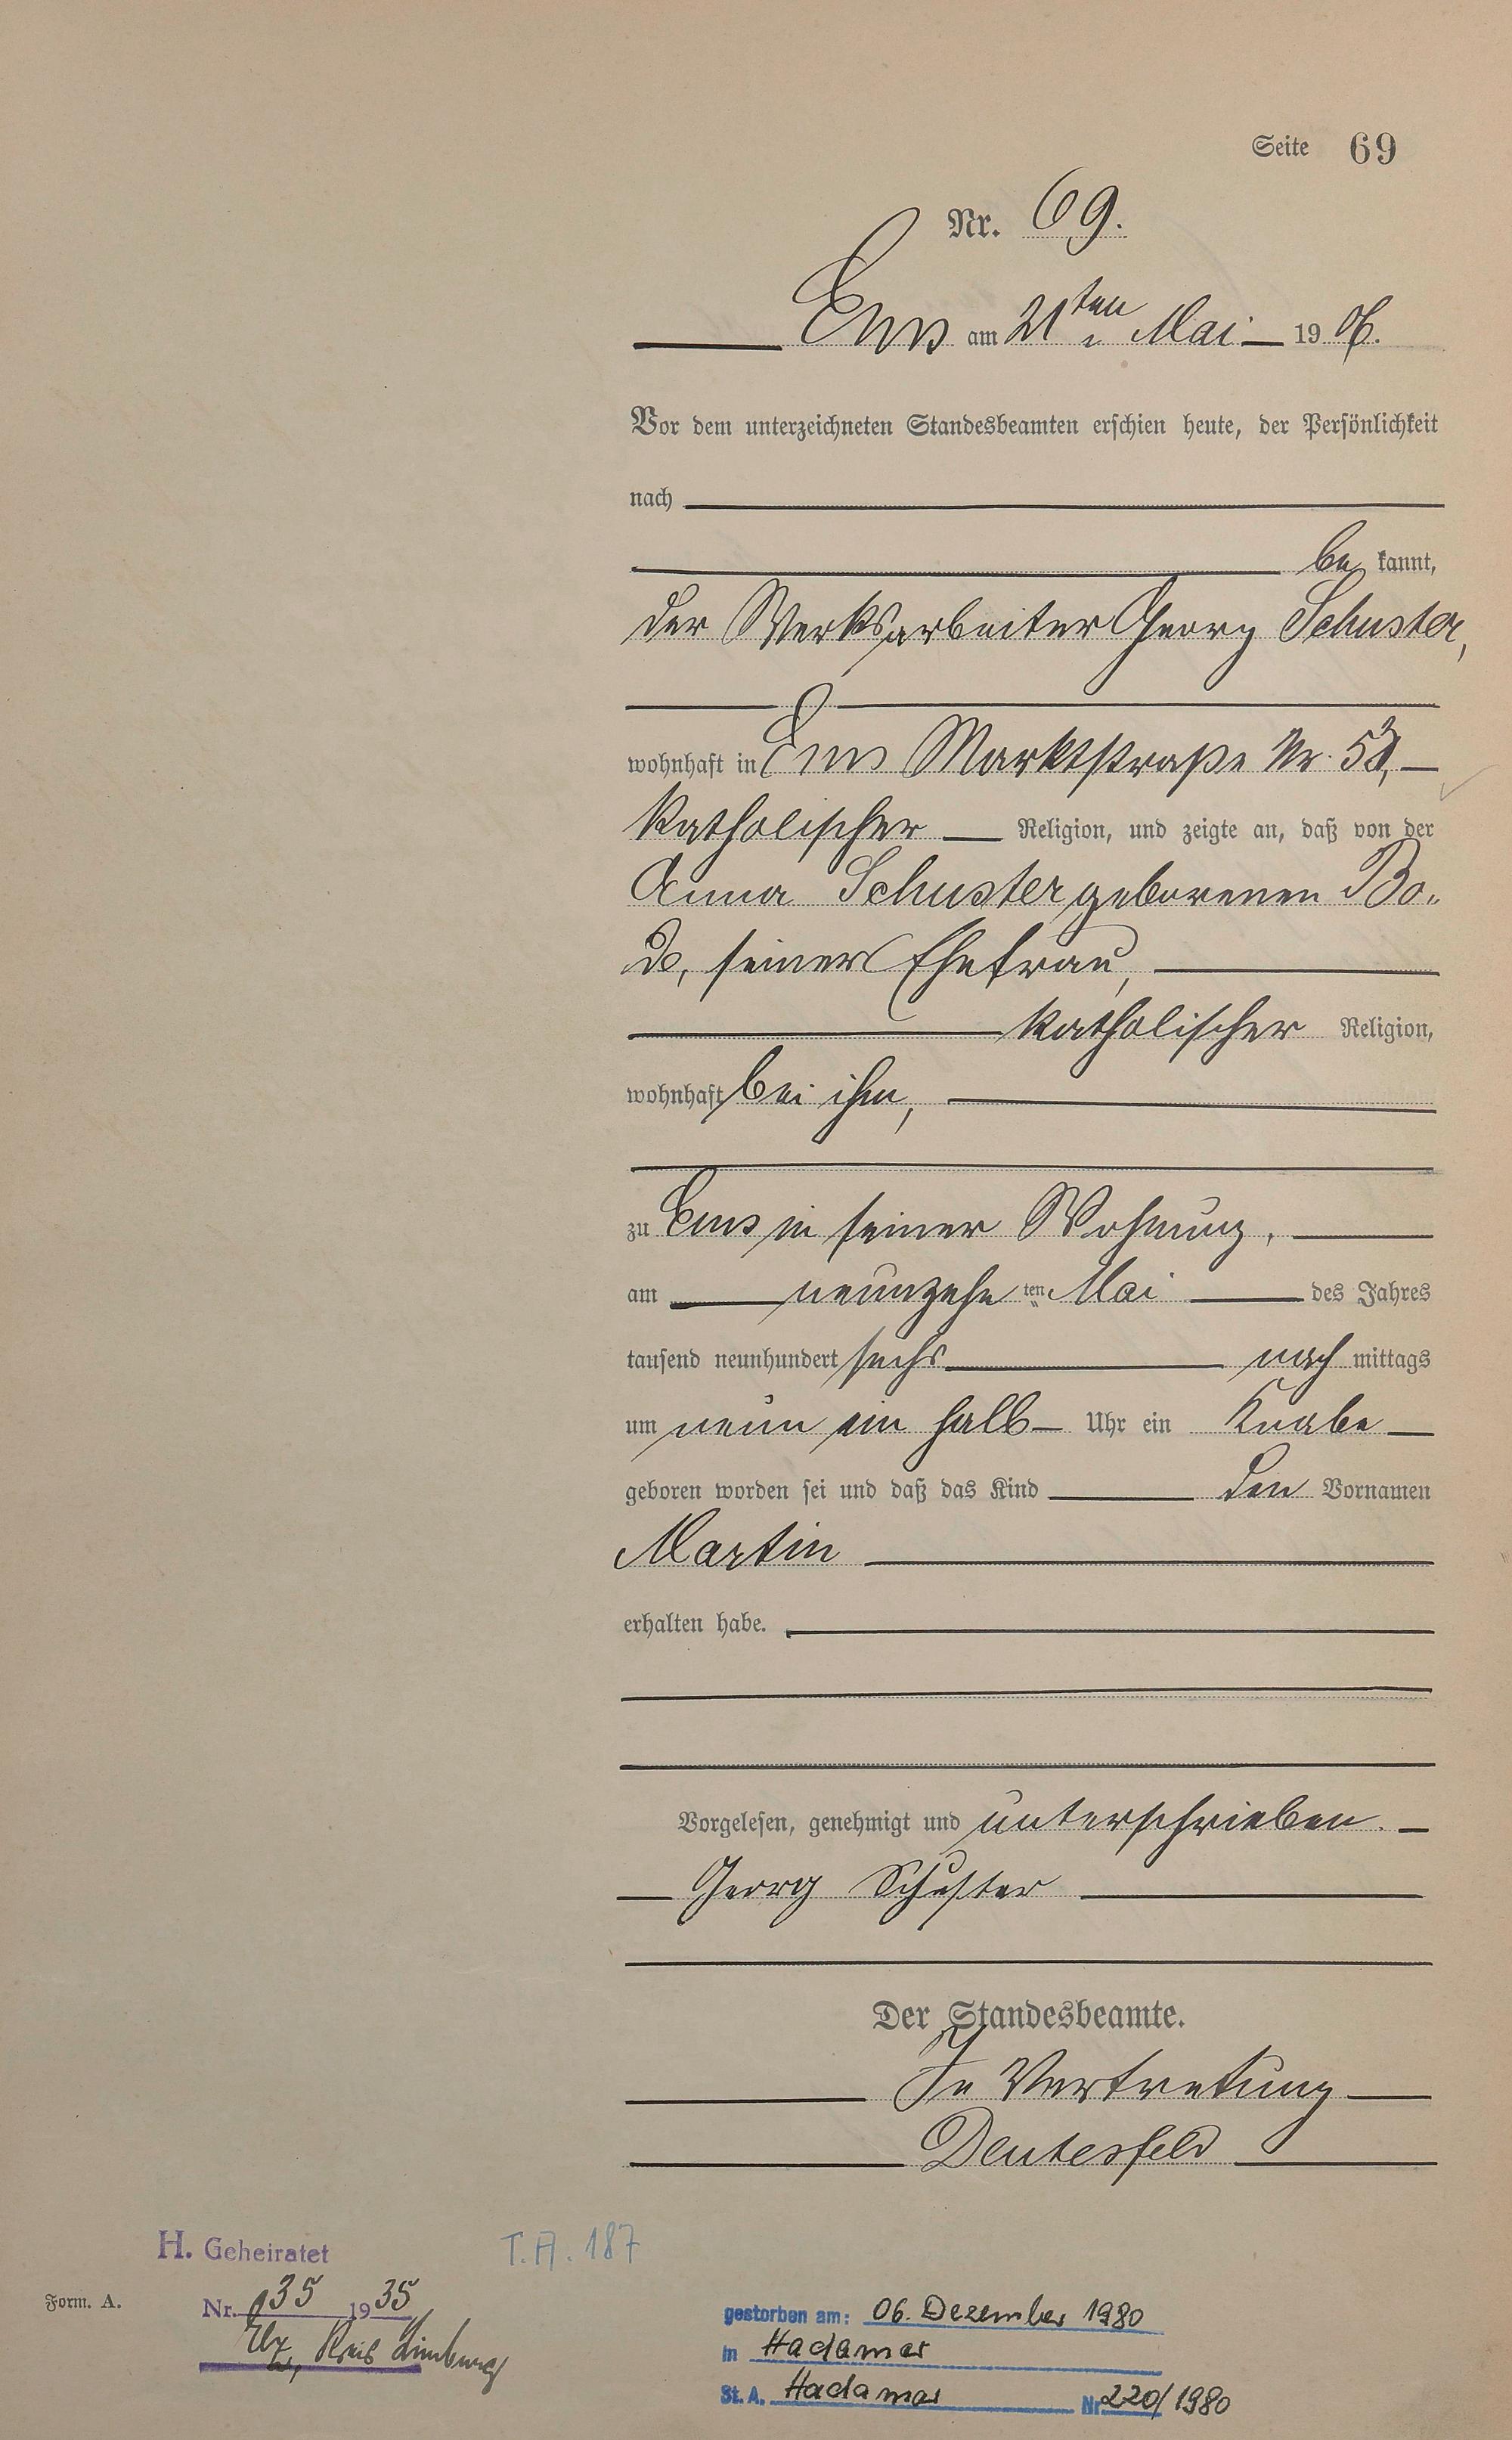 Seite 69
Nr. 69.
Ems am 21ten Mai 1906.
Vor dem unterzeichneten Standesbeamten erschien heute, der Persönlichkeit
nach
be kannt,
der Werksarbeiter Georg Schuster,
wohnhaft in Ems Marktstraße Nr.
katholischer Religion, und zeigte an, daß von der
Anna Schuster geborenen Bo-
de, seiner Ehefrau,
katholischer Religion,
wohnhaft bei ihm,
zu Ems in seiner Wohnung,
am neunzehn ten Mai des Jahres
tausend neunhundert sechs nach mittags
um neun ein halb Uhr ein Knabe
geboren worden sei und daß das Kind den Vornamen
Martin
erhalten habe.
Vorgelesen, genehmigt und unterschrieben.
Georg Schuster
Der Standesbeamte.
In Vertretung
Deutesfeld
H. Geheiratet
T.A. 187
Form. A.
Nr. 35 1935
Elz, Kreis Limburg
gestorben am: 06. Dezember 1980
in Hadamar
St. A. Hadamar Nr 220/1980